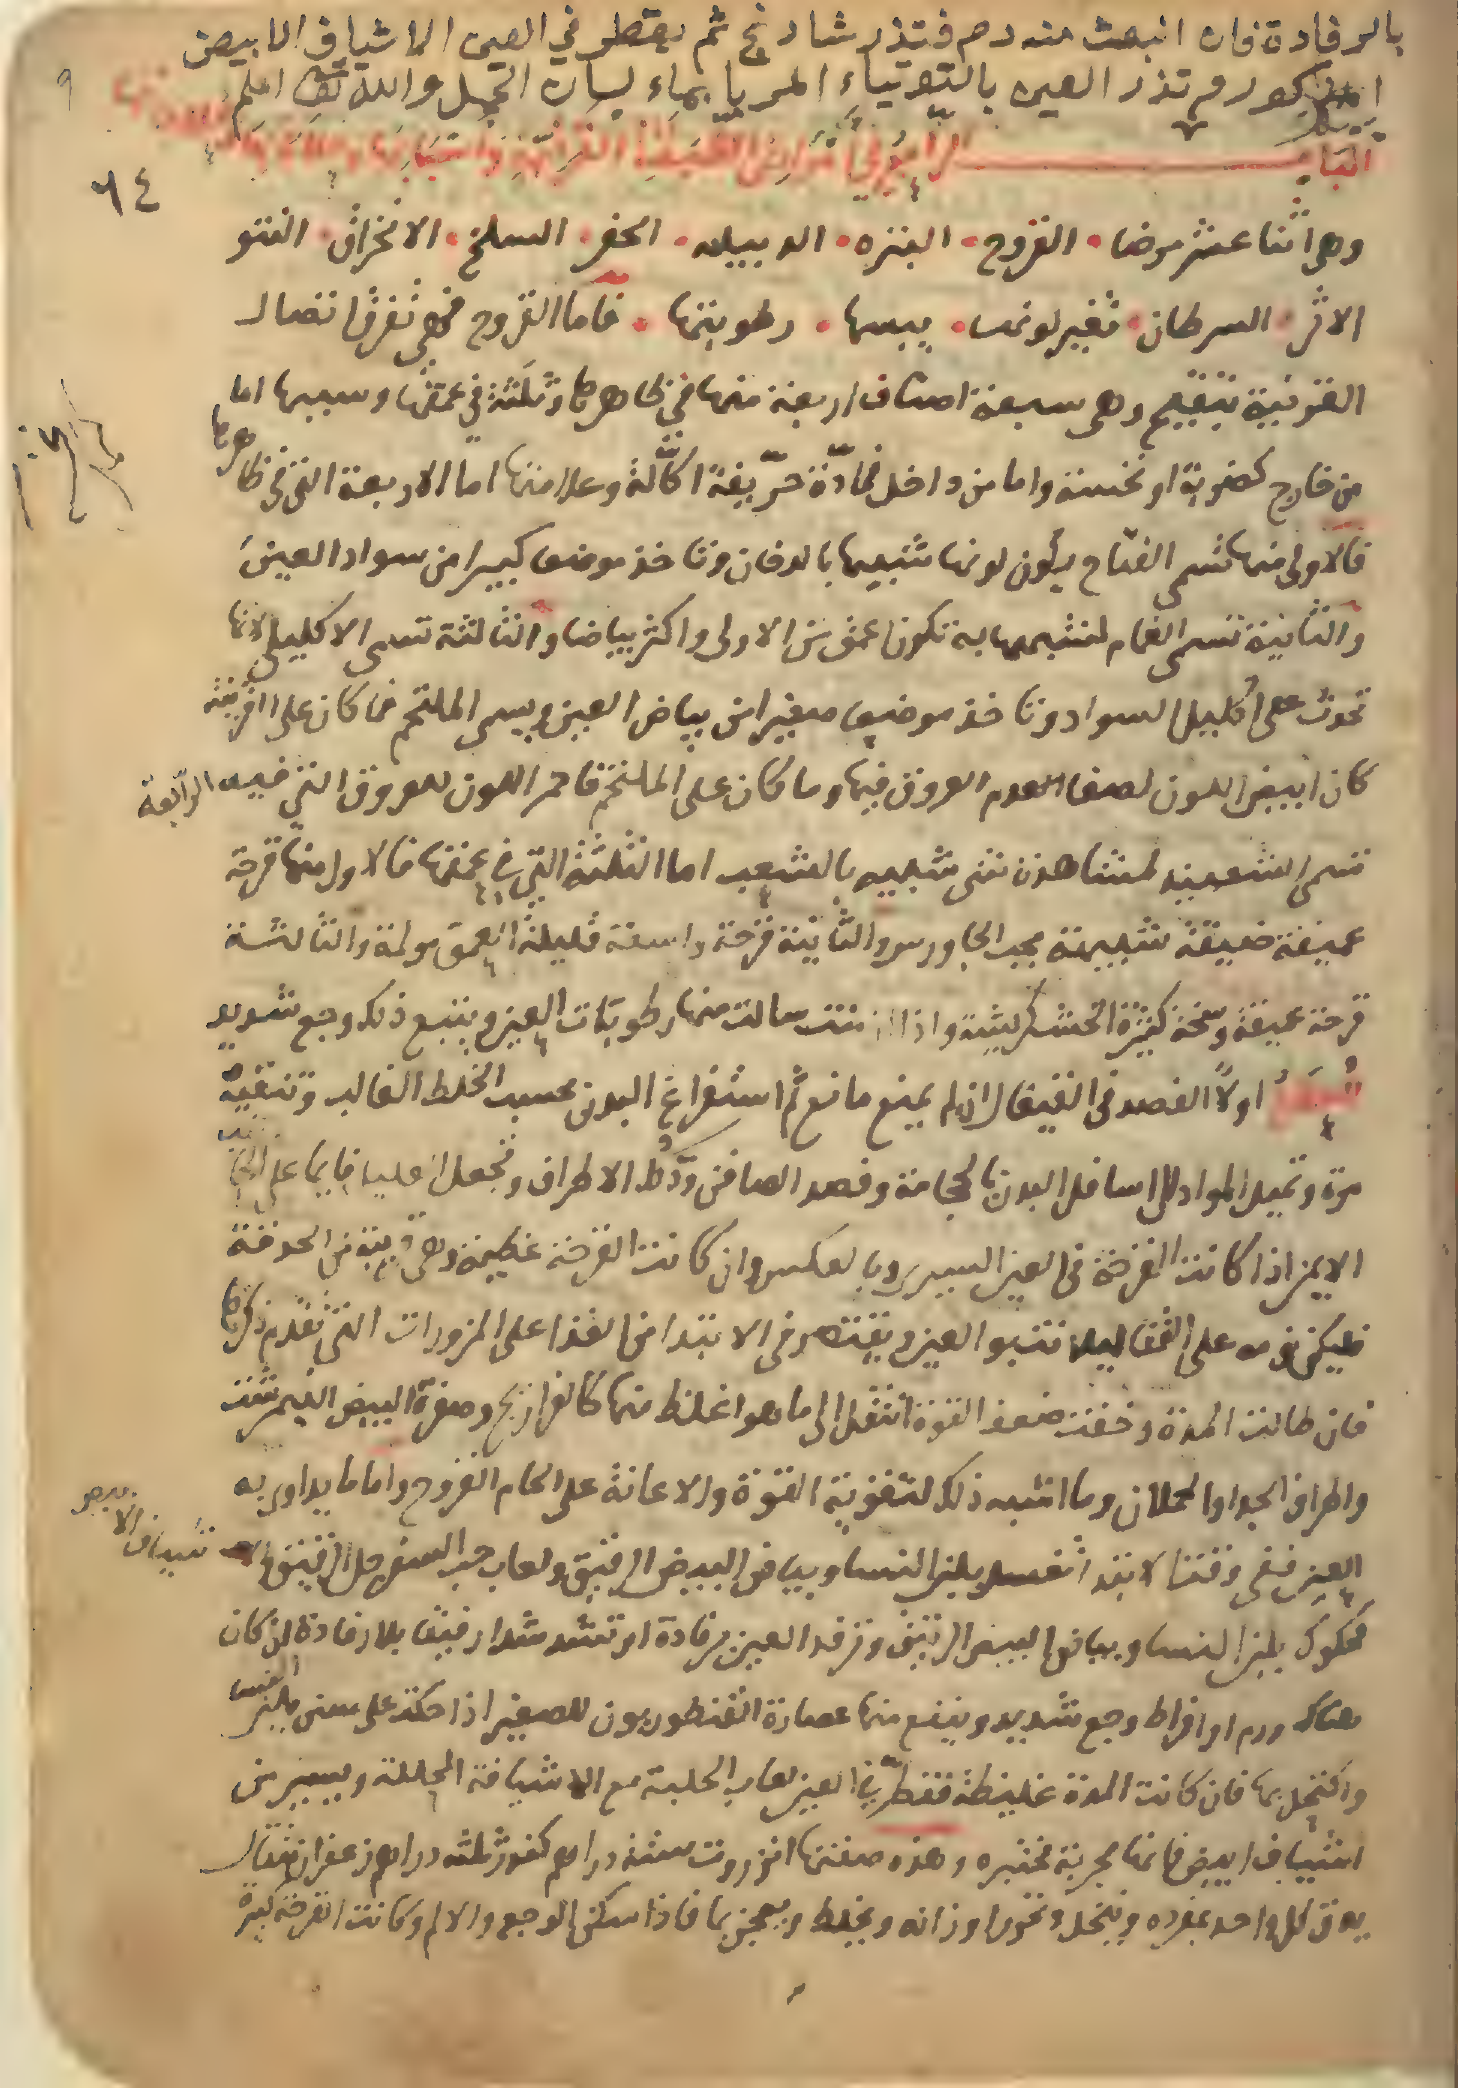 بالرفادة فان انبعث منه دم فتذر شادنج ثم يقطر في العين الاشياف الابيض
المذكور وتذر العين بالتوتياء المربا بماء لسان الحمل والله تعالى اعلم
٩
الباب الرابع في امراض الطبقة القرنية واسبابها
٦٤
وهي اثنا عشر مرضا القروح البثره الدبيله الحفر السلخ الانخراق النتو
الاثر السرطان تغير لونها يبسها رطوبتها فاما القروح فهي تفرق اتصال
القرنية بتقيح وهي سبعة اصناف اربعة منها في ظاهرها وثلثة في عمقها وسببها اما
من خارج كضربة او نخسة واما من داخل فمادة حريفة اكالة وعلامتها اما الاربعة التي في ظاهرها
فالاولى منها تسمى القتام يكون لونها شبيها بالدخان وتاخذ موضعا كبيرا من سواد العين
والثانية تسمى الغمام لتشبهها به تكون اعمق من الاولى واكثر بياضا والثالثة تسمى الاكليلي لانها
تحدث على اكليل السواد وتاخذ موضعا صغيرا من بياض العين ويسمى الملتحم فما كان على القرنية
كان ابيض اللون لصفا لعدم العروق فيها وما كان على الملتحم فاحمر اللون للعروق التي فيه الرابعة
تسمى الشعبية لمشاهدة شي شبيه بالشعب اما الثلثة التي في عمقها فالاول منها قرحة
عميقة ضيقة شبيهة بحب الجاورس والثانية قرحة واسعة قليلة العمق مولمة والثالثة
قرحة عميقة وسخة كثيرة الخشكريشة واذا ازمنت سالت منها رطوبات العين ويتبع ذلك وجع شديد
اولا الفصد في القيفال ان لم يمنع مانع ثم استفراغ البدن بحسب الخلط الغالب وتنقيته
مرة وتميل المواد الى اسافل البدن بالحجامة وفصد الصافن ودلك الاطراف وتجعل العليل نايما على الجانب
الايمن اذا كانت القرحة في العين اليسرى وبالعكس وان كانت القرحة عظيمة وهي قريبة من الحدقة
فليكن نومه على القفا ليلا تنتبو العين ويقتصر في الابتدا من الغذا على المزورات التي تقدم ذكرها
فان طالت المدة وخفت ضعف القوة انتقل الى ما هو اغلظ منها كالفراريج وصفرة البيض النيمرشت
واطراف الجدا والحملان وما اشبه ذلك لتقوية القوة والاعانة على الحام القروح واما ما يداوى به
العين ففي وقت الابتدا تغسل بلبن النسا وبياض البيض الرقيق ولعاب حب السفرجل الرقيق
شياف الابيض
محكوك بلبن النسا وبياض البيض الرقيق وترفد العين برفادة او تشد شدا رفيقا بلا رفادة ان كان
هناك ورم او افراط وجع شديد وينفع منها عصارة القنطوريون الصغير اذا حكت على مسن بلبن النسا
واكتحل بها فان كانت المدة غليظة فقطر في العين لعاب الحلبة مع الاشيافة المحللة ويسير من
اشياف ابيض فانها مجربة مختبره وهذه صفتها انزروت ستة دراهم كندر ثلثه دراهم زعفران مثقال
يدق كل واحد بمفرده وينخل وتحرر اوزانه ويخلط ويعجن بما فاذا سكن الوجع والالم وكانت القرحة كبيرة